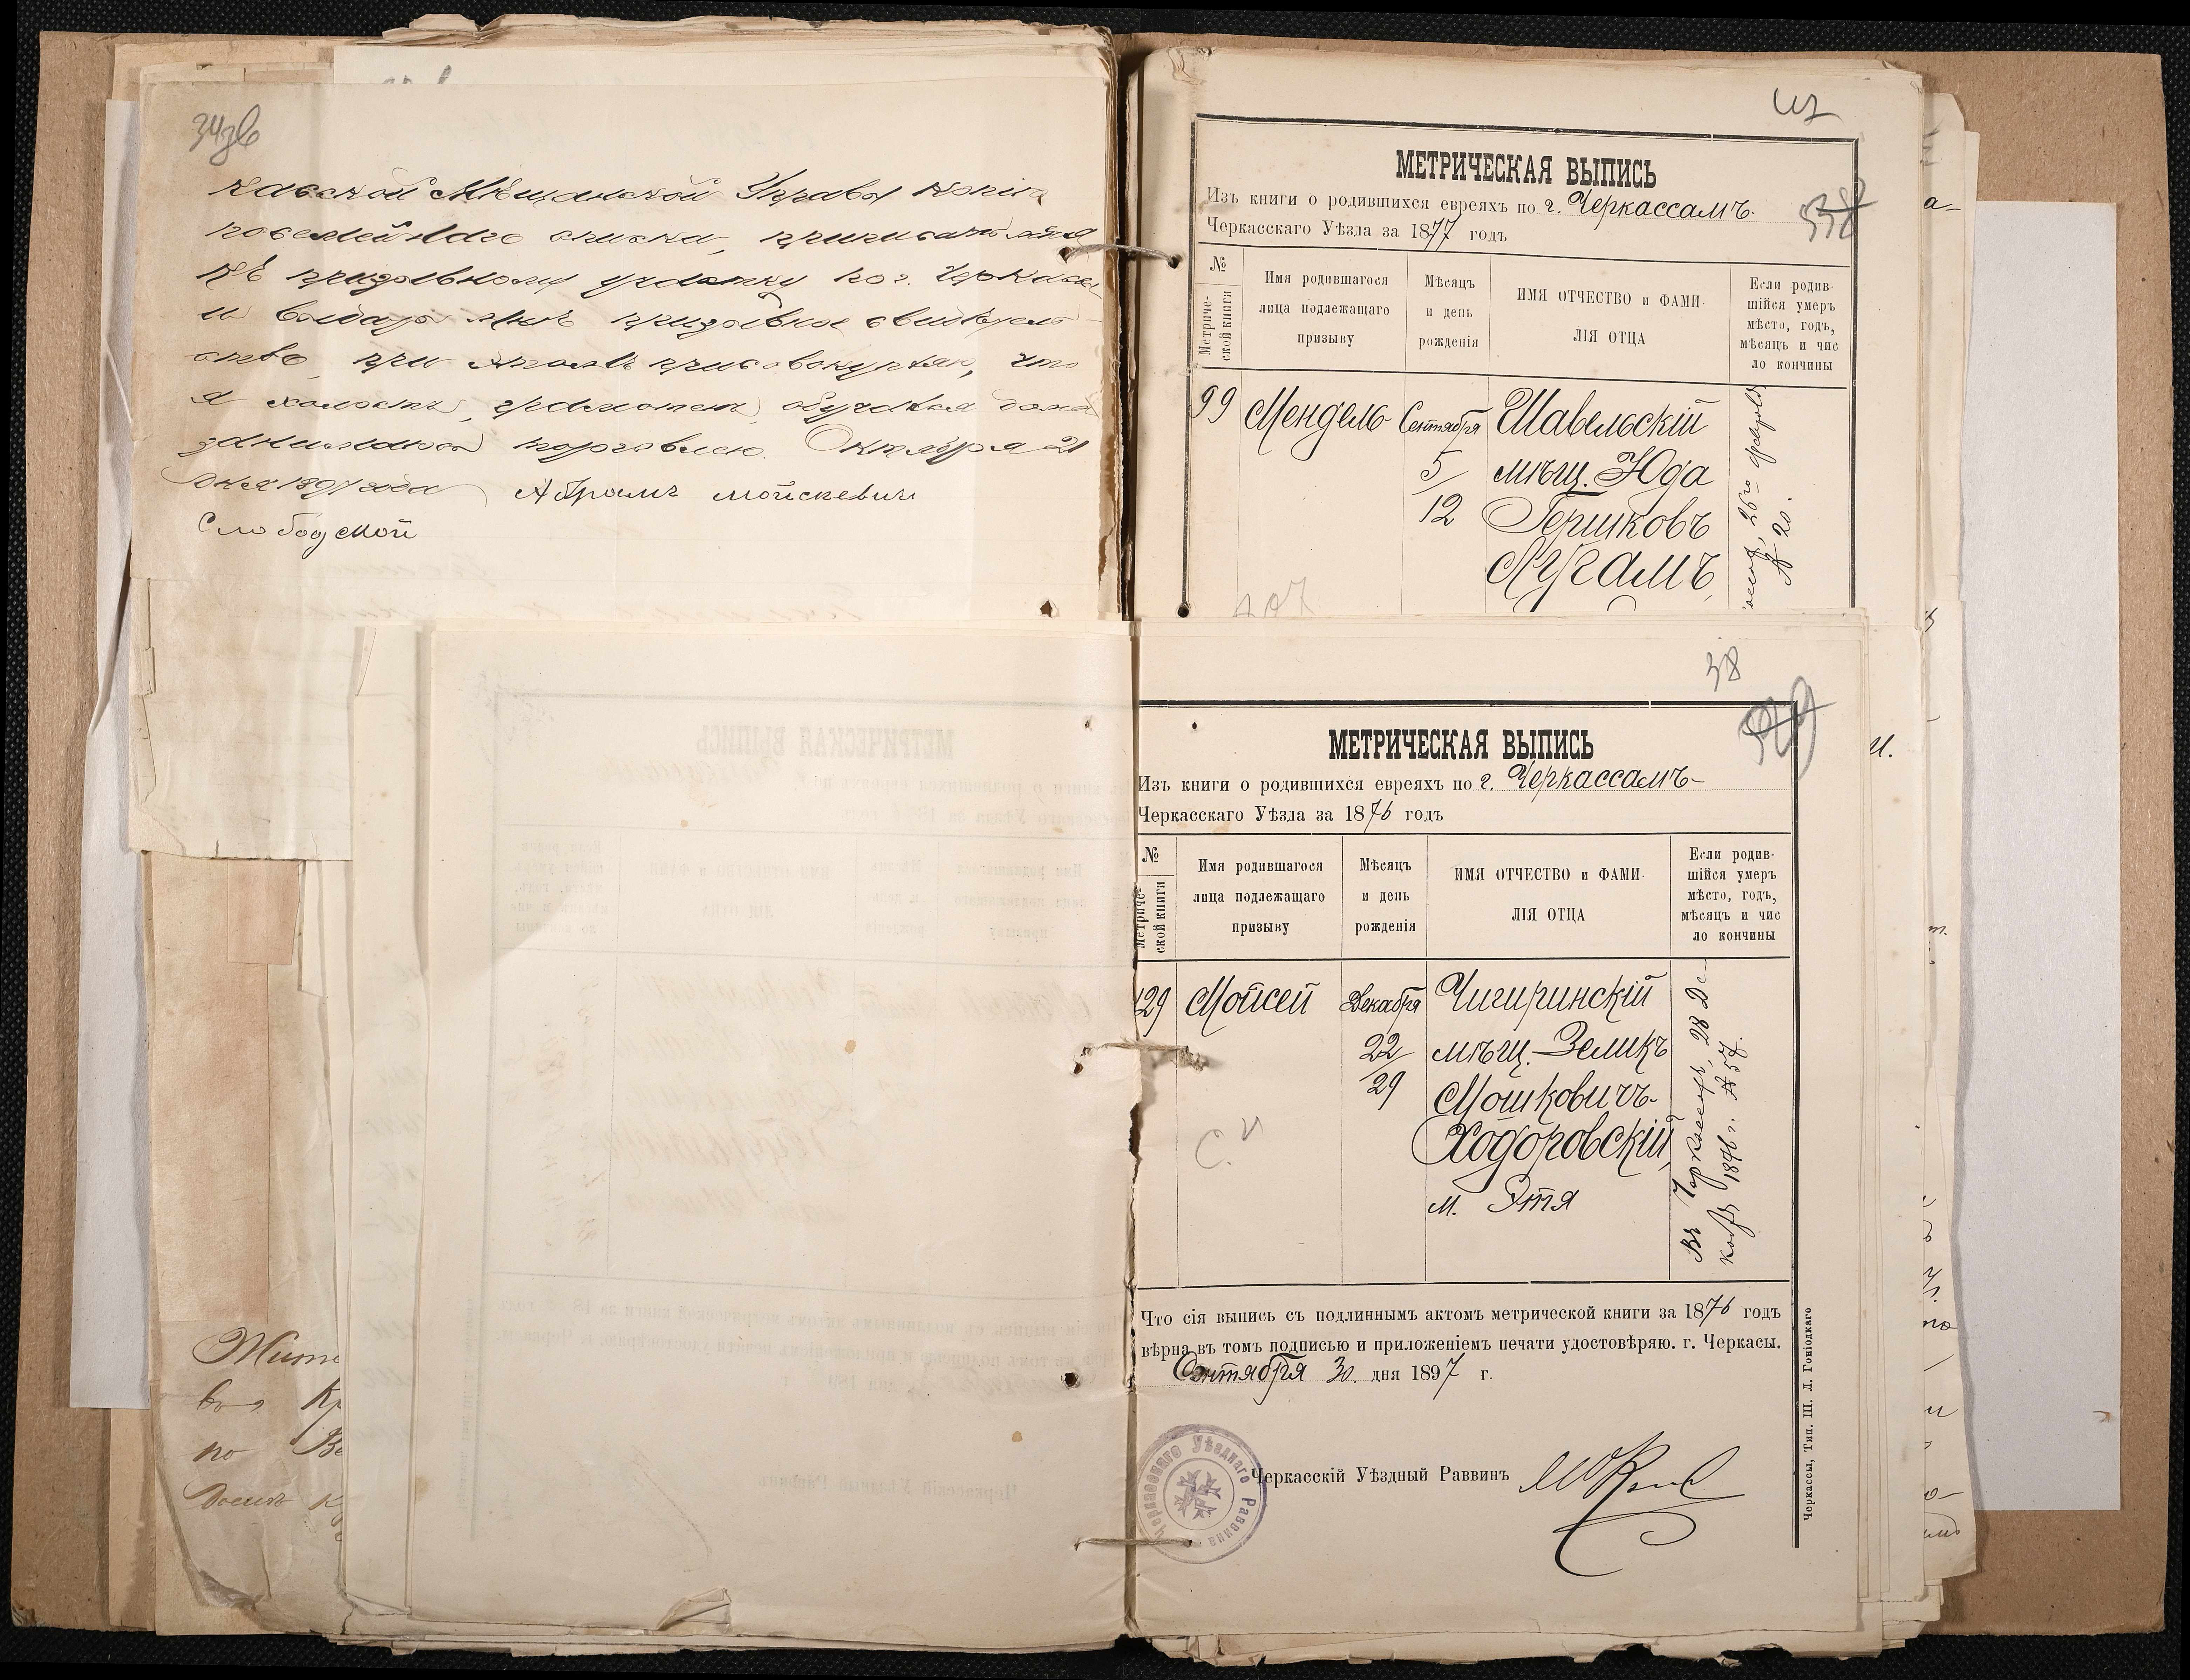 34зв
касской Мѣщанской Управы копію
посемейнаго списка, приписать меня
къ призывному участку по г. Черкассы
и выдать мнѣ призывное свидѣтель-
ство, при этомъ присовокупляю, что
я холостъ, грамотенъ, обучался дома
занимаюсь торговлею. Октября 21
дня 1897 года Абрамъ Мойсеевичъ
Слободской
МЕТРИЧЕСКАЯ ВЫПИСЬ
Изъ книги о родившихся евреяхъ по г. Черкассамъ.
Черкасскаго Уѣзда за 1877 годъ
№ Метриче-ской книги
Имя родившагося лица подлежащаго призыву
Мѣсяцъ и день рожденія
ИМЯ ОТЧЕСТВО и ФАМИ-ЛІЯ ОТЦА
Если родив-шійся умеръ мѣсто, годъ, мѣсяцъ и чис ло кончины
99 Мендель Сентября Шавельскій
5/ мѣщ. Юда
12 Гершковъ
407
№ 20.
38
МЕТРИЧЕСКАЯ ВЫПИСЬ
Изъ книги о родившихся евреяхъ по г. Черкассамъ-
Черкасскаго Уѣзда за 1876 годъ
№ Метриче-ской книги
Имя родившагося лица подлежащаго призыву
Мѣсяцъ и день рожденія
ИМЯ ОТЧЕСТВО и ФАМИ-ЛІЯ ОТЦА
Если родив-шійся умеръ мѣсто, годъ, мѣсяцъ и чис ло кончины
129 Мойсей Декабря Чигиринскій
22/ мѣщ. Зеликъ
29 Мошковичъ-
Ходоровскій,
м. Этя
Въ Черкассахъ, 28 Де-
кабр. 1876 г. № 57.
Что сія выпись съ подлиннымъ актомъ метрической книги за 1876 годъ
вѣрна въ томъ подписью и приложеніемъ печати удостовѣряю. г. Черкасы.
Сентября 30. дня 1897 г.
Черкасскій Уѣздный Раввинъ
Черкасскаго Уѣзднаго Раввина
Черкассы, Тип. Ш. Л. Гоніодкаго